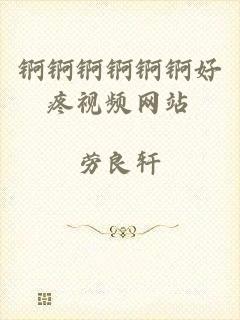 锕锕锕锕锕锕好
疼视频网站
劳良轩